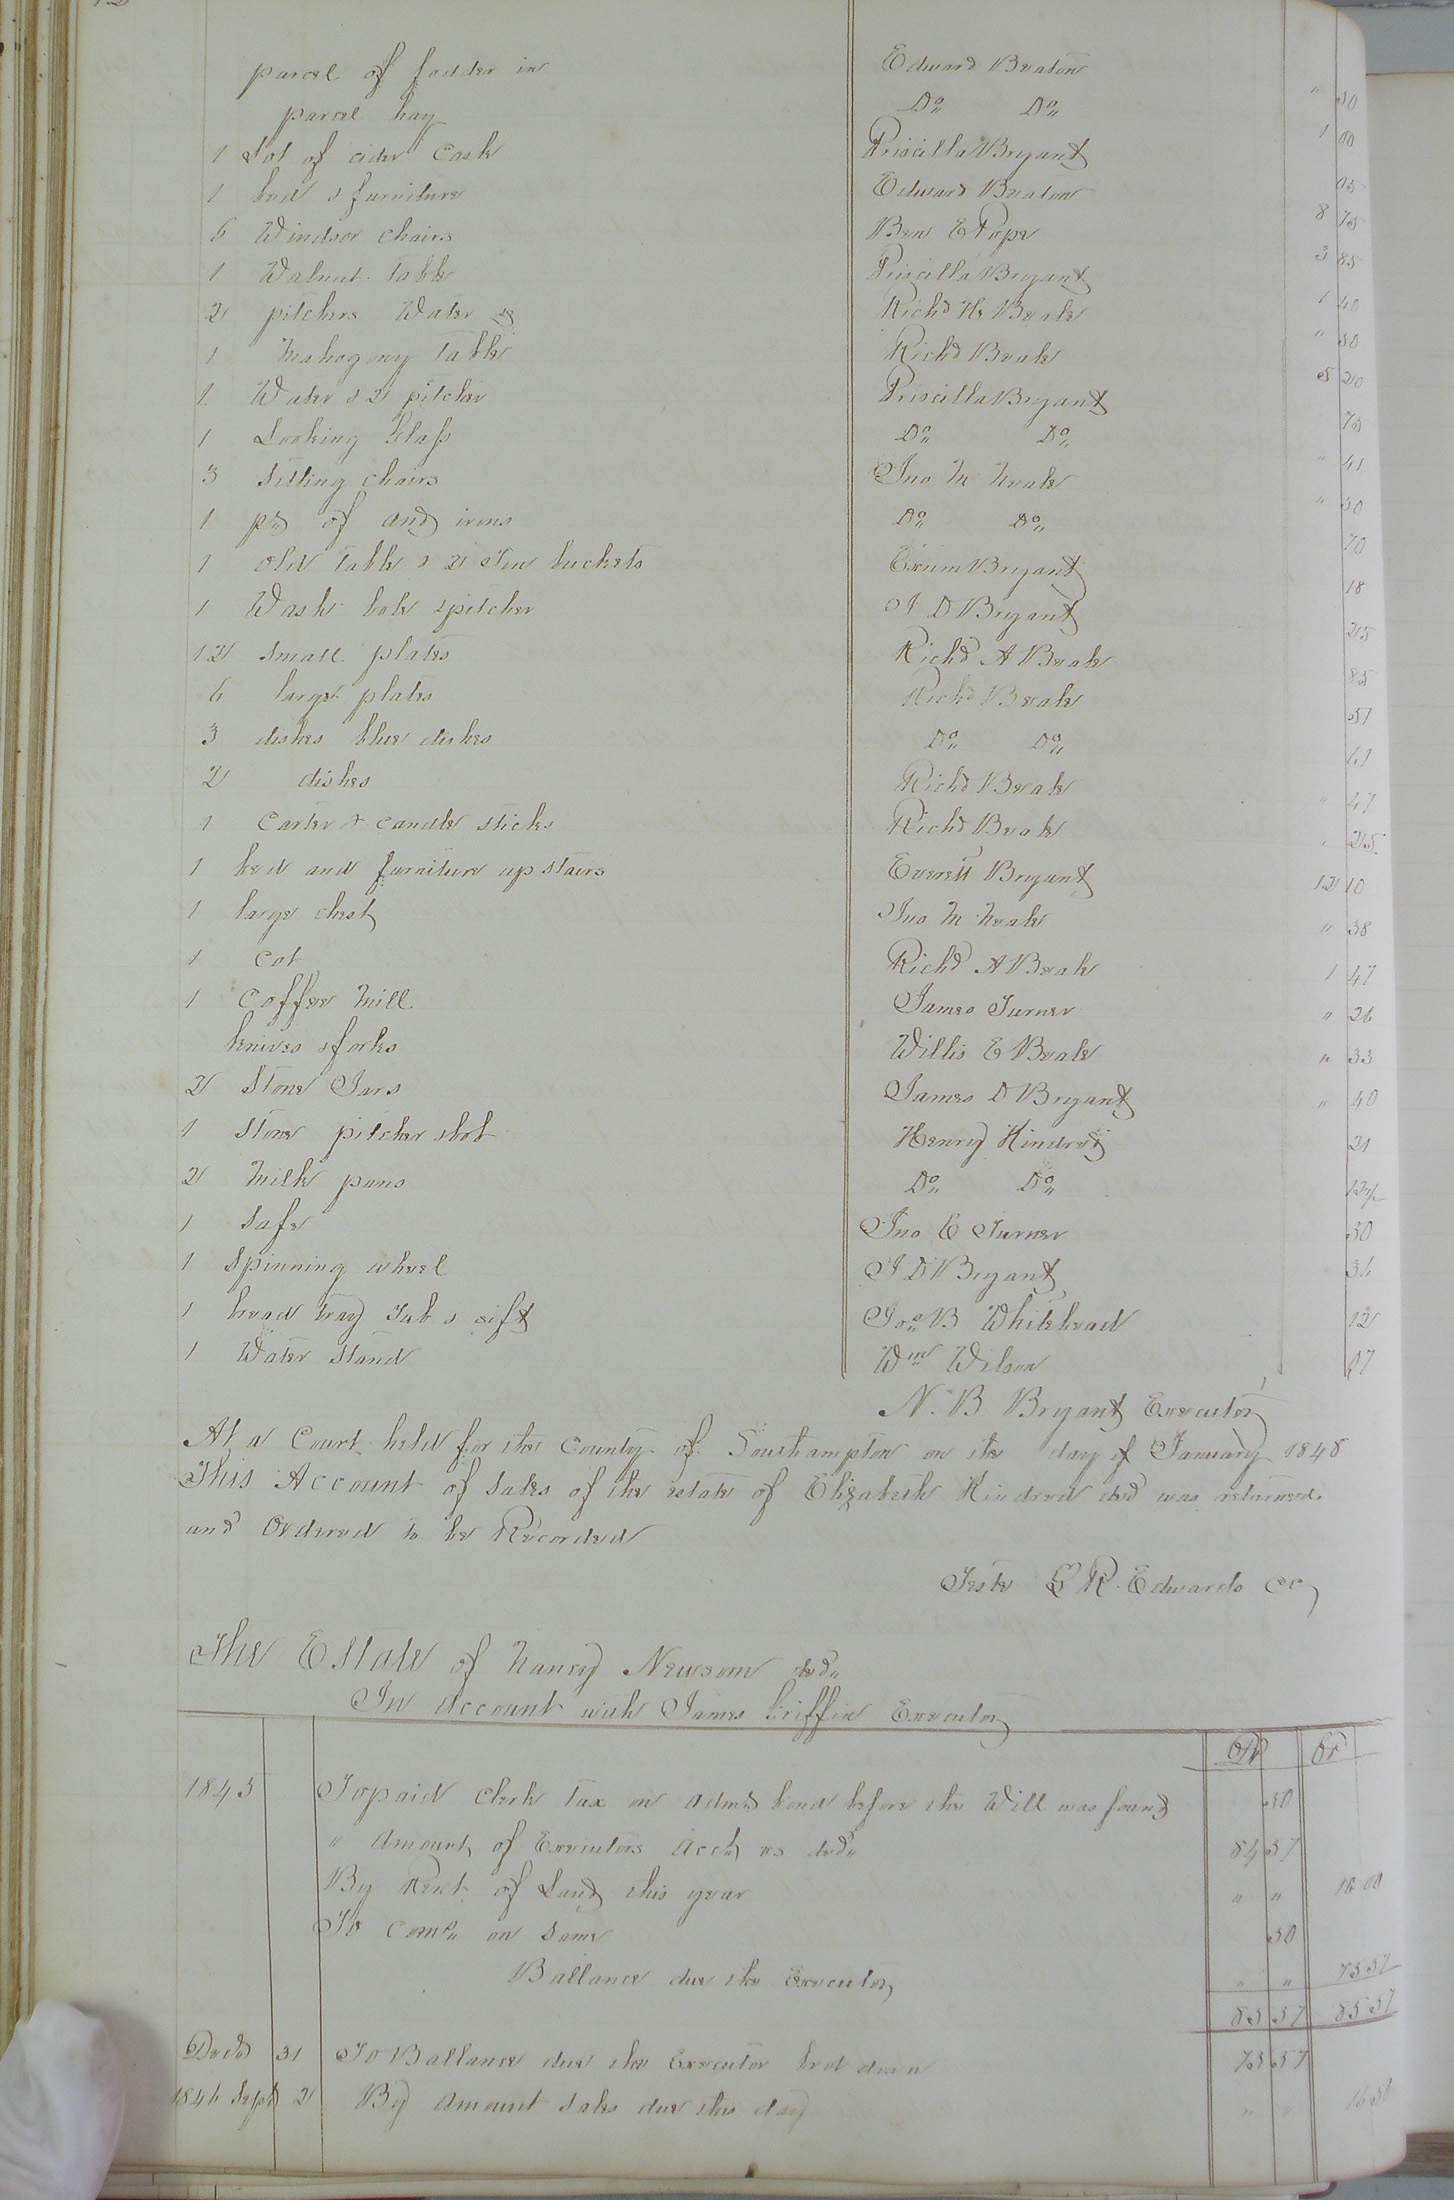 parcel of fodder in Edward Beaton " 50
parcel hay Do Do 1 00
1 Lot of cider Cask Priscilla Bryant 05
1 bed & furniture Edward Beaton 8 75
6 Windsor chairs Ben E Pope 3 85
1 Walnut Table Priscilla Bryant 1 40
2 pitchers Water Richd H Beale " 50
1 Mahogony Table Richd Beale 5 20
1 Water & 2 pitcher Priscilla Bryant 75
1 Looking Glass Do Do " 41
3 Sitting chairs Jno M Neale " 50
1 pr of and irons Do Do 70
1 old Table & 2 Tin buckets Exum Bryant 18
1 Wash bole & pitcher J D Bryant 25
12 Small plates Richd A Beale 85
6 large plates Richd Beale 51
3 dishes blue dishes Do Do 61
2 dishes Richd Beale " 47
1 Carter & candle sticks Richd Beale " 25
1 bed and furniture up stairs Everett Bryant 12 10
1 large chest Jno M Neale " 38
1 Cot Richd A Beale 1 47
1 Coffee Mill James Turner " 26
knives & forks Willis E Beale " 33
2 Stone Jars James D Bryant " 40
1 Stone pitcher & bot Henry Hindred 21
2 Milk pans Do Do 13½
1 Safe Jno E Turner 30
1 Spinning wheel J D Bryant 36
1 bread tray Tub & sift Jos B Whitehead 12
1 Water Stand Wm Wilson 07
N. B Bryant Executor
At a Court held for the County of Southampton on the day of January 1848
This Account of Sales of the estate of Elizabeth Hindred decd was returned
and Ordered to be Recorded
Teste L R Edwards CC
The Estate of Nancy Newsom decd
In Account with James Griffin Executor
Dr Cr
1845 To paid Clerk tax on Admrs bond before the Will was found 50
" Amount of Executors Acct vs decd 84 57
By Rent of Land this year " " 10 00
To Comn on Same 50
Ballance due the Executor " " 75 57
85 57 85 57
Decr 31 To Ballance due the Executor brot down 75 57
1846 Sept 2 By Amount Sales due this day " " 16 50